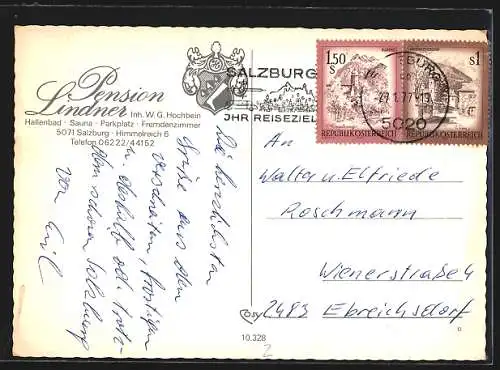 Pension
Lindner Inh. W. G. Hochbein
Hallenbad · Sauna · Parkplatz · Fremdenzimmer
5071 Salzburg · Himmelreich 6
Telefon 06222/44152
Die herzlichsten
Grüße aus dem
verschneiten, frostigen
u. deshalb od. trotz-
dem schönen Salzburg
von Emil
SALZBURG
IHR REISEZIEL
27.1.77-13
5020
1.50
S
REPUBLIK ÖSTERREICH
s1
REPUBLIK ÖSTERREICH
An
Walter u. Elfriede
Roschmann
Wienerstraße 4
2483 Ebreichsdorf
10.328